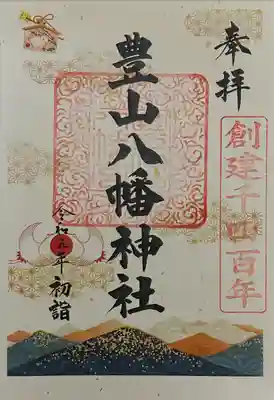 奉拝
創建千四百年
豊山八幡神社
令和元年
初詣